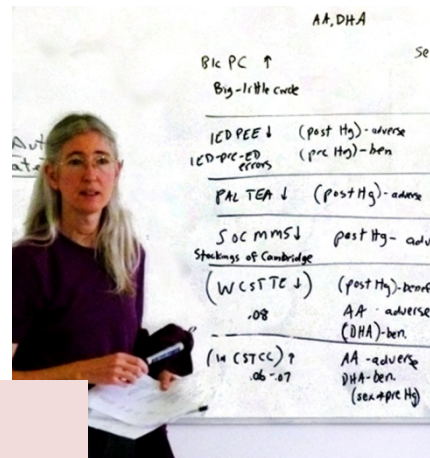 AA, DHA
Se
BLC PC ↑
Big-little circle
IED PEE ↓ (post Hg)-adverse
IED-pre-ED (pre Hg)-ben
errors
PAL TEA ↓ (post Hg)-adverse
SOC MMS↓ post Hg- adv
Stockings of Cambridge
(WCST TE ↓) (post Hg)-benef
.08 AA - adverse
(DHA)-ben.
CSTCC) ↑ AA -adverse
.06-.07 DHA-ben.
(sex+pre Hg)